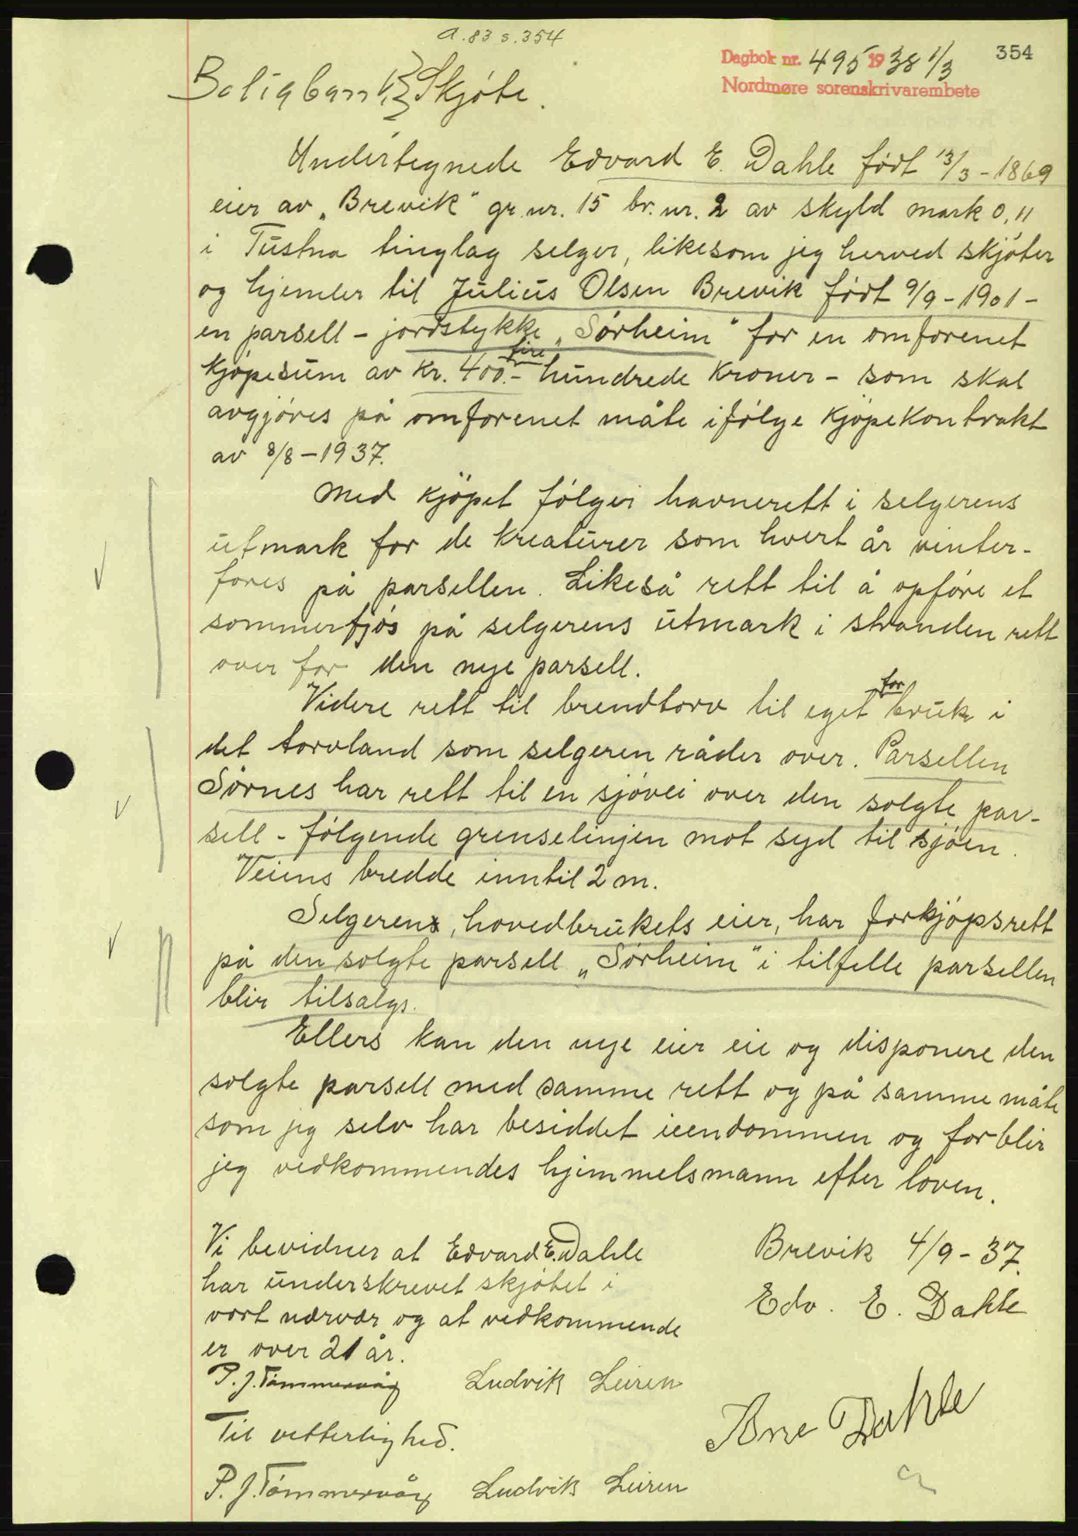 a. 83 s. 354
Dagbok nr. 495 1938 1/3
354
Nordmøre sorenskrivarembete
Skjøte.
Undertegnede Edvard E. Dahle født 13/3 - 1869
eier av „Brevik" gr. nr. 15 br. nr. 2 av skyld mark 0,11
i Tustna tinglag selger, likesom jeg herved skjøter
og hjemler til Julius Olsen Brevik født 9/9 - 1901 -
en parsell - jordstykke „Sørheim" for en omforenet
kjøpesum av kr. 400.- fire hundrede kroner - som skal
avgjøres på omforenet måte ifølge kjøpekontrakt
av 8/8 - 1937.
Med kjøpet følger havnerett i selgerens
utmark for de kreaturer som hvert år vinter-
fores på parsellen. Likeså rett til å opføre et
sommerfjøs på selgerens utmark i stranden rett
over for den nye parsell.
Videre rett til brendtorv til eget for bruk i
det torvland som selgeren råder over. Parsellen
Sørnes har rett til en sjøvei over den solgte par-
sell - følgende grenselinjen mot syd til sjøen.
Veiens bredde inntil 2 m.
Selgeren, hovedbrukets eier, har forkjøpsrett
på den solgte parsell „Sørheim" i tilfelle parsellen
blir tilsalgs.
Ellers kan den nye eier eie og disponere den
solgte parsell med samme rett og på samme måte
som jeg selv har besiddet eiendommen og forblir
jeg vedkommendes hjimmelsmann efter loven.
Brevik 4/9 - 37.
Edv. E. Dahle
Vi bevidner at Edvard E. Dahle
har underskrevet skjøtet i
vort nærvær og at vedkommende
er over 21 år.
P. J. Tømmervåg Ludvik Leiren
Dahle
Til vetterlighed.
P. J. Tømmervåg Ludvik Leiren